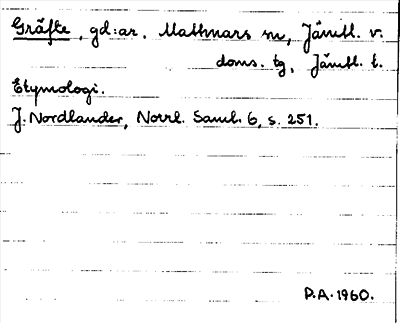 Gräfte, gd:ar. Mattmars sn, Jämtl. v.
doms. tg, Jämtl. l.
Etymologi.
J. Nordlander, Norrl. Saml. 6, s. 251.
P.A. 1960.